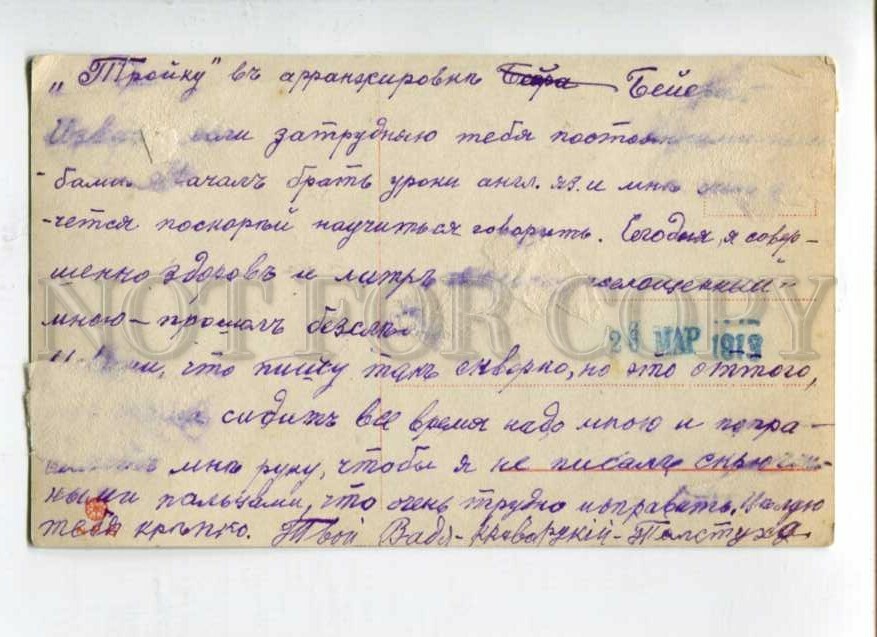 „Тройку" въ арранжировкѣ Бейра Бейе
затрудняю тебя постоян
бами. началъ брать уроки англ. яз. и мнѣ
-чется поскорѣй научиться говорить. Сегодня, я совер-
шенно здоровъ и литръ поглощенный
мною - прошолъ безслѣ
23 МАР 1912
что пишу такъ скверно, но это оттого,
сидитъ все время надо мною и попра-
мнѣ руку, чтобы я не писалъ скрючен-
ными пальцами, что очень трудно исправить. Цѣлую
тебя крѣпко. Твой Вадя - криворукій - Толстуха
NOT FOR COPY